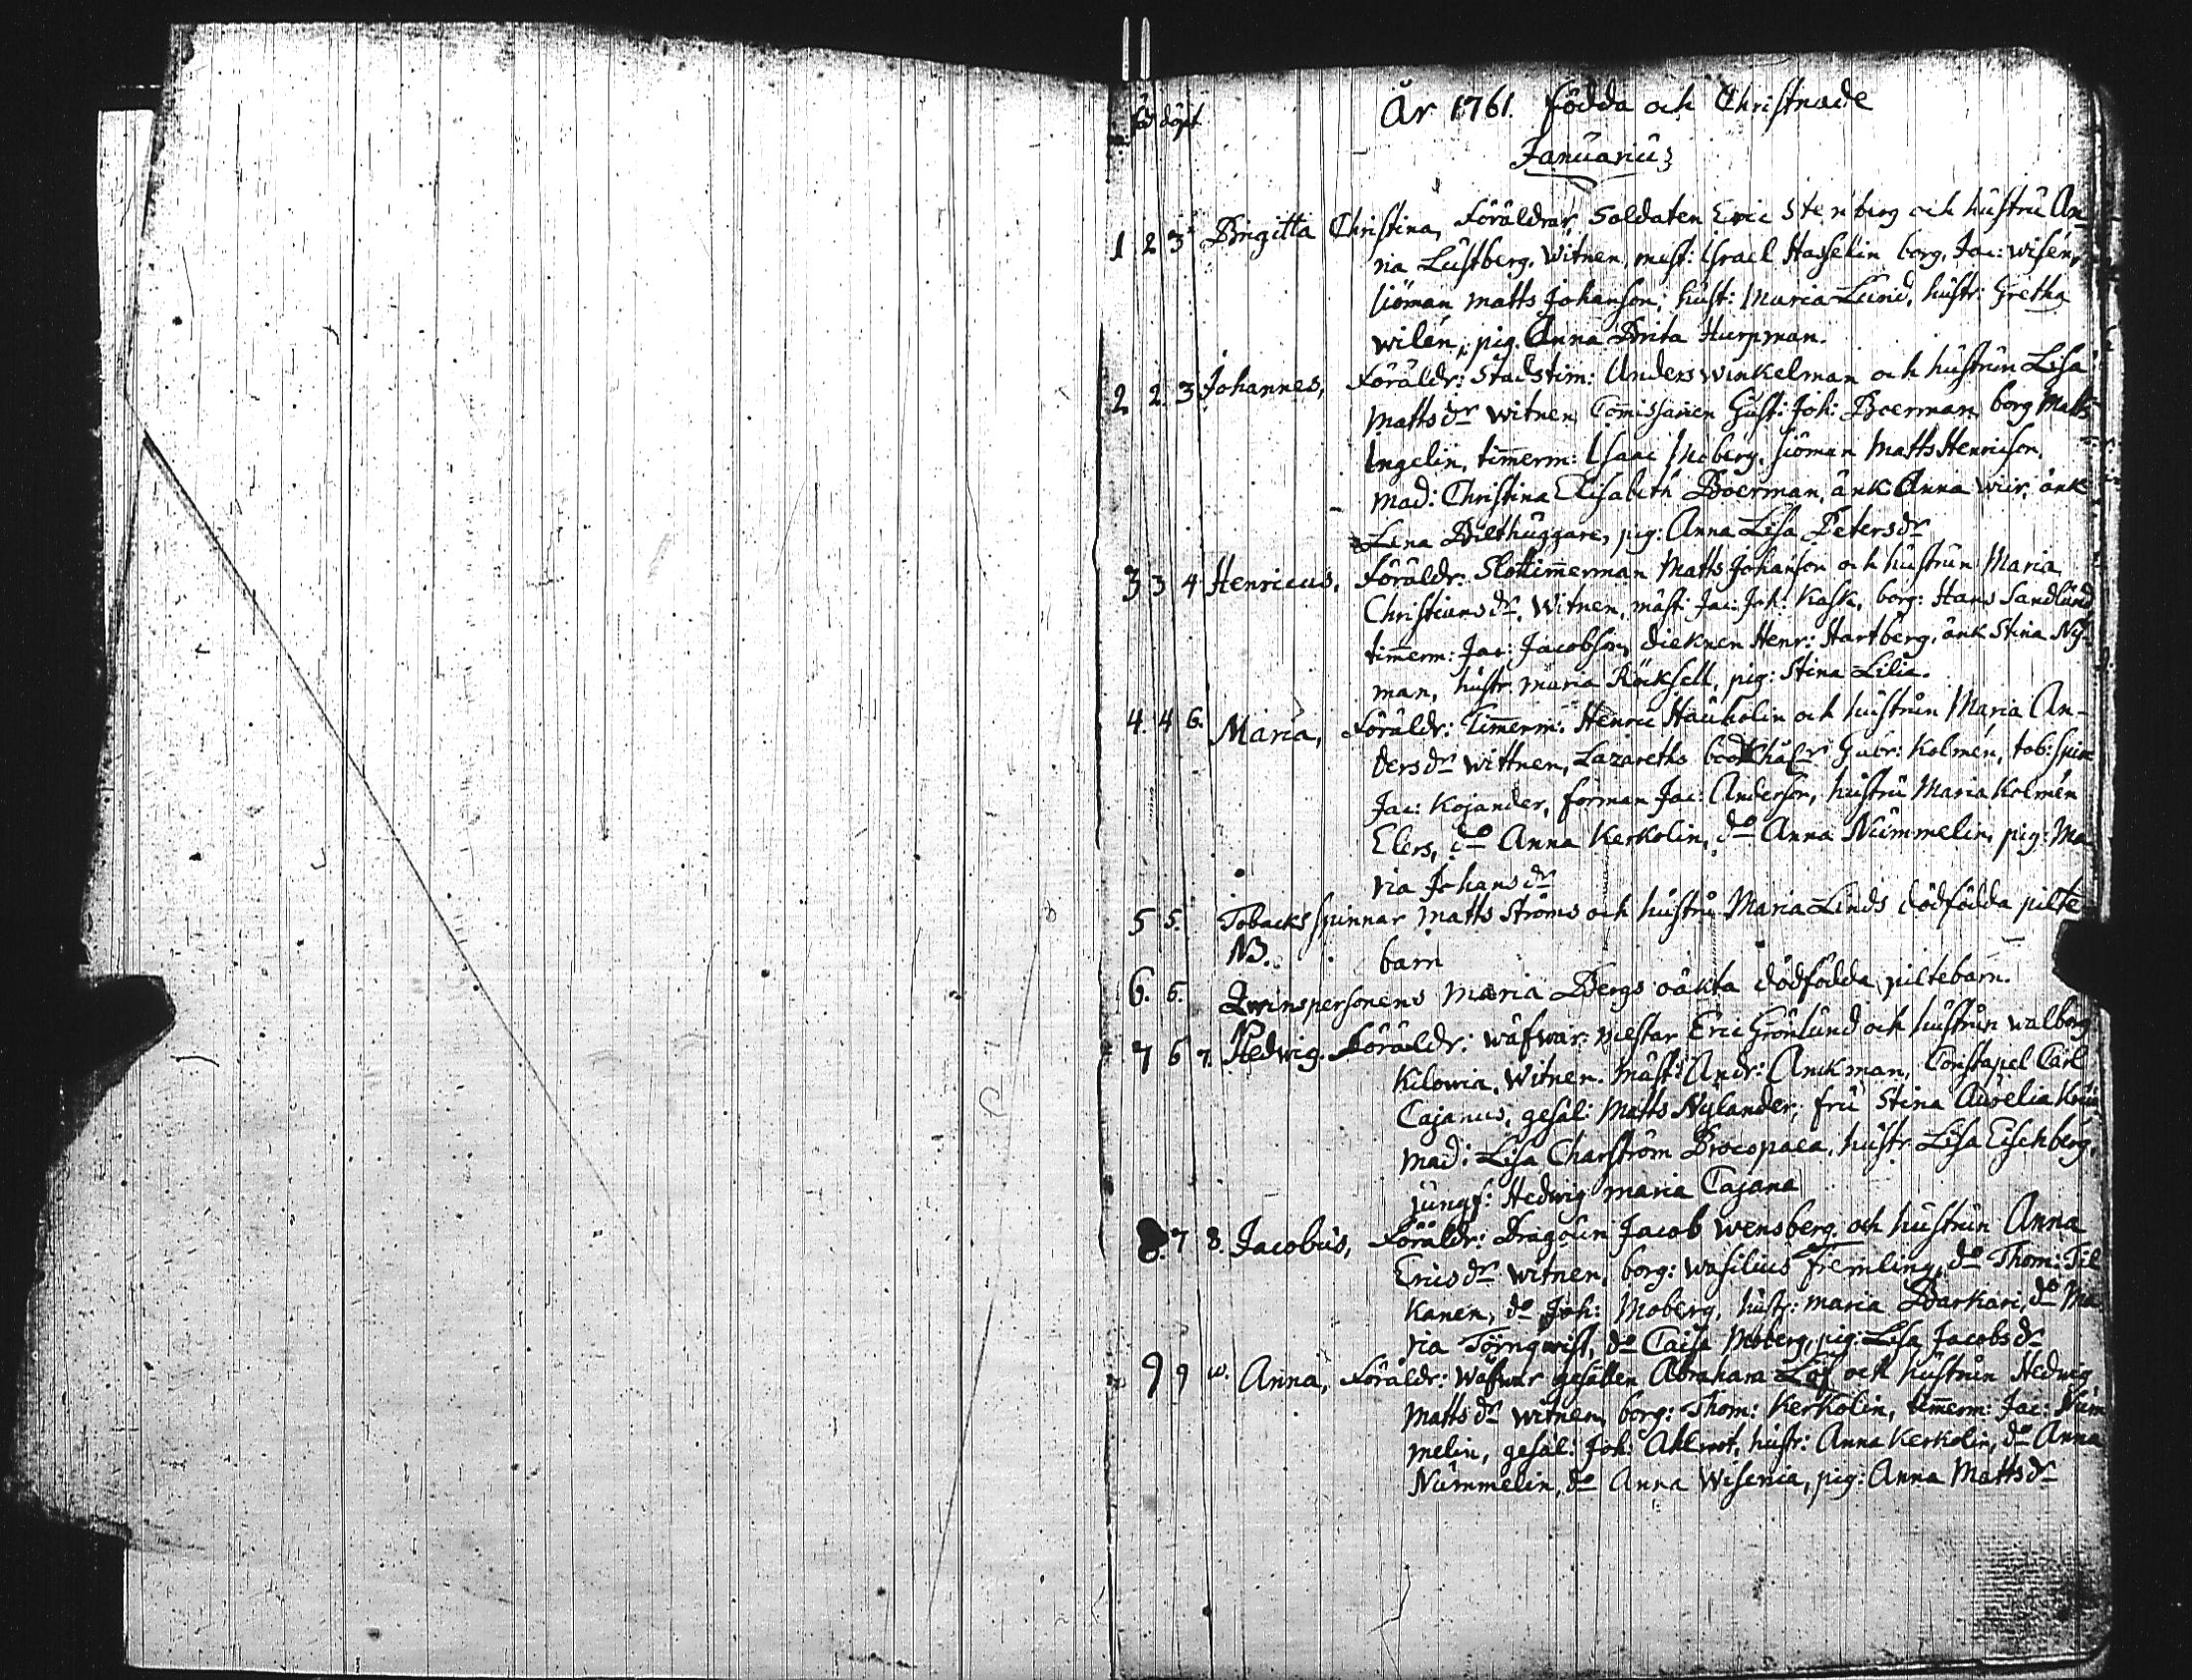 föd döpt
År 1761. födda och Christnade
Januarius
1 2 3 Brigitta Christina, Föräldrar, Soldaten Eric Stenberg och hustru An-
na Lustberg. Witnen, mest: Israel Hasselin borg. Jac: Wisén,
siöman Matts Johanson, hust: Maria Lund, hustr: Gretha
Wilén, pig. Anna Brita Hurpman.
2 2. 3 Johannes, Föräldr: Stadstim: Anders Winkelman och hustrun Lisa
Mattsdr Witnen Commissarien Gust: Joh: Boerman, borg Matts
Ingelin, timmerm: Isaac Moberg, siöman Matts Henricson,
Mad: Christina Elisabeth Boerman, änk Anna Wür, änk
Lena Bilthuggare, pig: Anna Lisa Petersdr
3 3 4 Henricus, Föräldr: Slottimmerman Matts Johanson och hustrun Maria
Christiansdr. Witnen, mäst: Jac: Joh: Kask, borg: Hans Sandlund,
timmerm: Jac: Jacobson, dieknen Henr: Hartberg, änk Stina Ny-
man, hustr. Maria Röcksell, pig: Stina Lilia.
4. 4 6. Maria, Föräldr: Timmerm: Henric Haukolin och hustrun Maria An-
dersdr Wittnen, Lazareths Gabr: Kolmén, tob: spin
Jac: Kojander, forman Jac: Anderson, hustru Maria Kolmén
Elers, do Anna Kerkolin, do Anna Nummelin, pig: Ma
ria Johansdr
5 5. Tobacks spinnar Matts Ströms och hustru Maria Linds dödfödda pilte
NB. barn
6. 6. Qwinspersonens Maria Bergs oäkta dödfödda piltebarn.
7 6 7. Hedwig. Föräldr: wäfwar mestar Eric Grönlund och hustrun Walborg
Kilowia. Witnen. Mäst: Andr: Anckman, Constapel Carl
Cajanus, gesäl: Matts Nylander, fru Stina Aurelia
Mad: Lisa Charström Procopaea, hustr Lisa Eischberg,
jungf: Hedwig Maria Cajana
8. 7 8. Jacobus, Föräldr: Dragoun Jacob Wensberg och hustrun Anna
Ericsdr Witnen, borg: Wasilius Fremling, do Thom: Til
kanen, do Joh: Moberg, hustr: Maria Barkari, do Ma
ria Törnqwist, do Caisa Moberg, pig: Lisa Jacobsdr
9 9 10. Anna, Föräldr: Wäfwar gesällen Abraham Löf och hustrun Hedwig
Mattsdr Witnen, borg: Thom: Kerkolin, timmerm: Jac: Num
melin, gesäl: Joh: Ahlroot, hustr: Anna Kerkolin, do Anna
Nummelin, do Anna Wisenia, pig: Anna Mattsdr